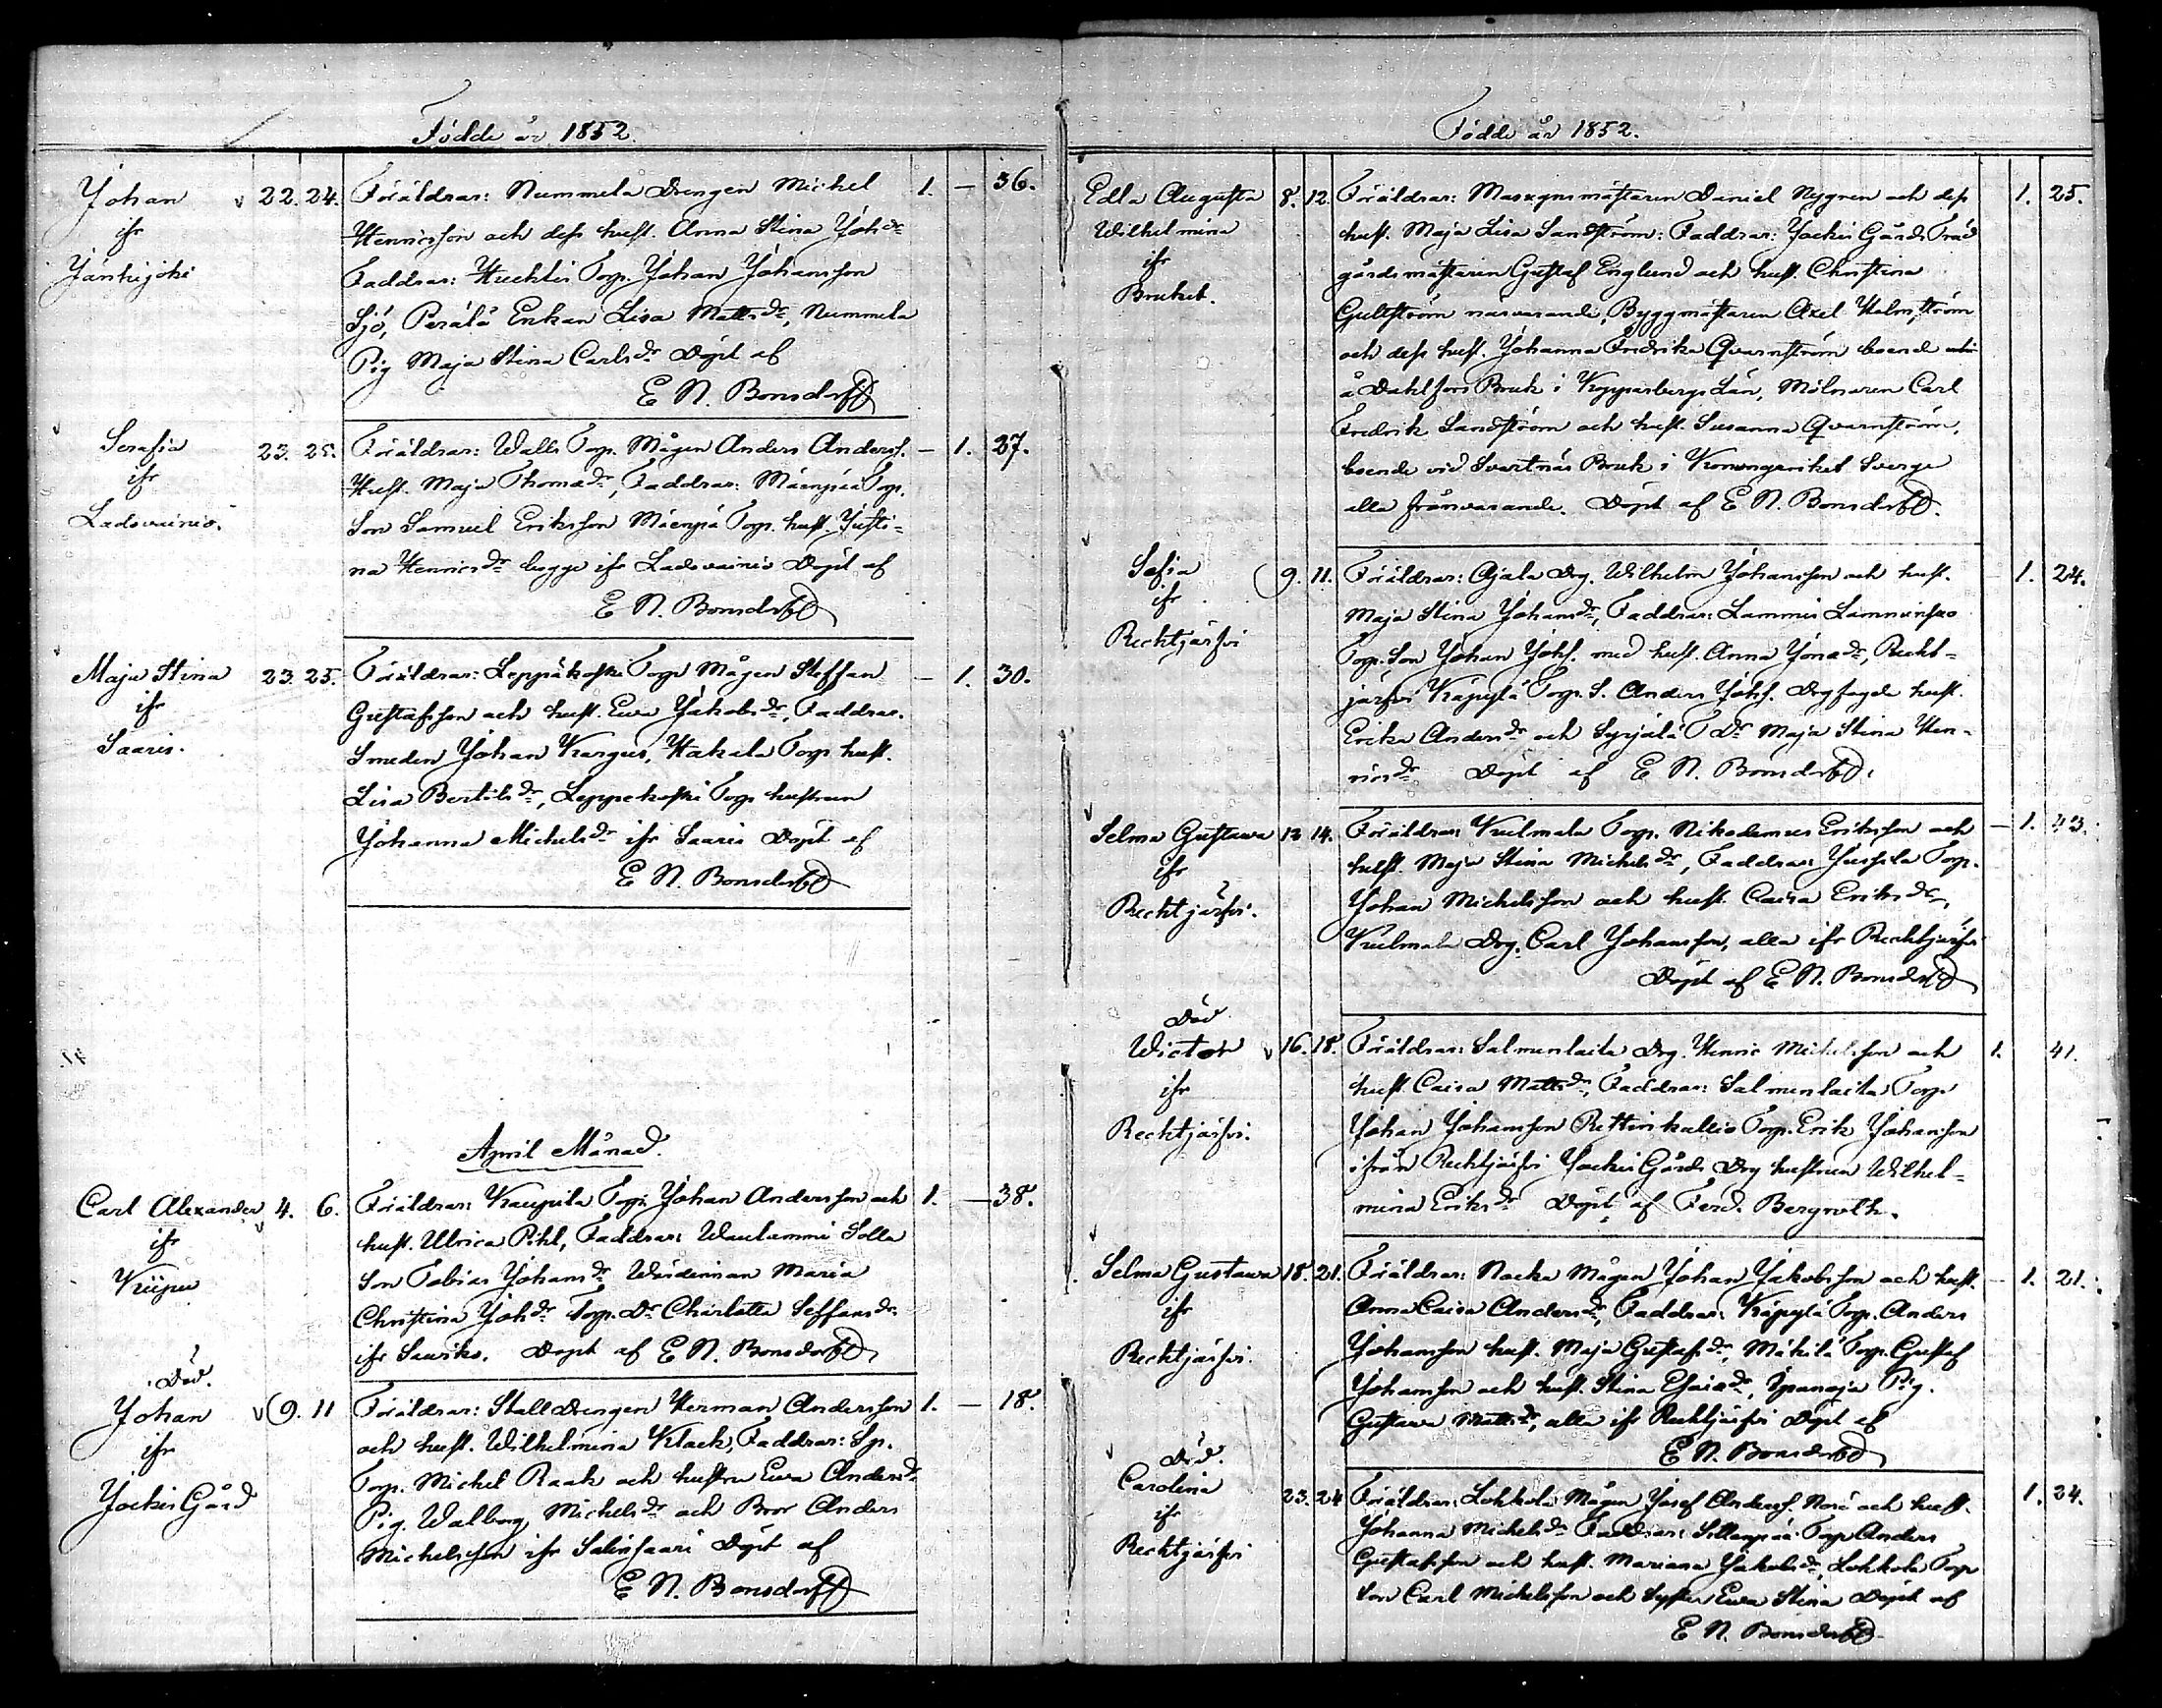 Födde år 1852.
Johan 22. 24. Föräldrar: Nummela Drengen Michel 1. — 36.
ifr Henricsson och dess hust. Anna Stina Johdr
Jänhijoki Faddrar: Huchtis Torp. Johan Johansson
Sjö, Perälä Enkan Lisa Mattsdr, Nummela
Pig Maja Stina Carlsdr Döpt af
E N. Bonsdorff
Serafia 23. 25. Föräldrar: Walli Torp. Mågen Anders Anderss. — 1. 27.
ifr Hust. Maja Thomadr, Faddrar: Mäenpää Torp.
Ladovainio. Son Samuel Eriksson Mäenpä Torp. hust. Justi-
na Henricsdr begge ifr Ladovainio Döpt af
E N. Bonsdorff
Maja Stina 23. 25. Föräldrar: Leppäkoski Torp Mågen Steffan — 1. 30.
ifr Gustafsson och hust. Eva Jakobsdr, Faddrar.
Saaris. Smeden Johan Kargus, Hakala Torp hust.
Lisa Bertilsdr, Leppekoski Torp hustrun
Johanna Michelsdr ifr Saaris Döpt af
E N. Bonsdorff
April Månad.
Carl Alexander 4. 6. Föräldrar: Kaupila Torp. Johan Andersson och 1. — 38.
ifr hust. Ulrica Pihl, Faddrar: Waulammi Solla
Kiipu Son Tobias Johansdr Wärdinnan Maria
Christina Johdr Torp. Dr Charlotta Seffansdr
ifr Sauriko. Döpt af E N. Bonsdorff
Död.
Johan 9. 11 Föräldrar: Stalldrengen Herman Andersson 1. — 18.
ifr och hust. Wilhelmina Klack, Faddrar: Sp.
Jockis Gård Torp. Michel Raak och hustru Eva Andersdr
Pig. Walborg Michelsdr och Bror Anders
Michelsson ifr Salinsaari Döpt af
E N. Bonsdorff
Födde år 1852.
Edla Augusta 8. 12. Föräldrar: Masugnsmästaren Daniel Nygren och dess 1. 25.
Wilhelmina hust. Maja Lisa Sandström: Faddrar: Jockis Gårds Träd
ifr gårdsmästaren Gustaf Englund och hust. Christina
Bruket. Gultström närvarande, Byggmästaren Axel Holmström
och dess hust. Johanna Fredrika Qvarnström boende
å Dahlfors Bruk i Kopparbergs Län, Mölnaren Carl
Fredrik Sandström och hust. Susanna Qvarnström,
boende vid Svartnäs Bruk i Konungariket Sverge
alla frånvarande. Döpt af E N. Bonsdorff.
Sofia 9. 11. Föräldrar: Ojala Drg. Wilhelm Johansson och hust. 1. 24.
ifr Maja Stina Johansdr, Faddrar: Lammis
Rechtjärfvi Torp. Son Johan Johs. med hust. Anna Jonadr, Recht-
järfvi Käpylä Torp. S. Anders Johs. Drg hust.
Erika Andersdr och Syrjälä T Dr Maja Stina Hen-
ricsdr Döpt af E N. Bonsdorff.
Selma Gustava 12 14. Föräldrar: Kulmala Torp. Nikodemus Eriksson och — 1. 43.
ifr hust. Maja Stina Michelsdr, Faddrar: Jussila Torp.
Rechtjärfvi. Johan Michelsson och hust. Caisa Eriksdr,
Kulmala Drg. Carl Johansson, alla ifr Rechtjärfvi
Döpt af E N. Bonsdorff
Död
Wictor 16. 18. Föräldrar: Salmenlaita Drg. Henric Michelsson och 1. 41.
ifr hust. Caisa Mattsdr, Faddrar: Salmenlaita Torp
Rechtjärfvi. Johan Johansson Rittinkallio Torp. Erik Johansson
ifrån Rechtjärfvi Jockis Gårds Drg hustrun Wilhel-
mina Eriksdr Döpt af Ferd. Bergroth.
Selma Gustava 18. 21. Föräldrar: Nacka Mågen Johan Jakobsson och hust. — 1. 21.
ifr Anna Caisa Andersdr, Faddrar: Käpylä Torp. Anders
Rechtjärfvi. Johansson hust. Maja Gustafsdr, Mäkilä Torp. Gustaf
Johansson och hust. Stina Esaiadr, Pig.
Gustava Mattsdr, alla ifr Rechtjärfvi Döpt af
E N. Bonsdorff
Död.
Carolina 23. 24 Föräldrar: Lokkola Mågen Josef Anderss. Norä och hust. 1. 24.
ifr Johanna Michelsdr Faddrar: Sillanpää Torp Anders
Rechtjärfvi Gustafsson och hust. Mariana Jakobsdr, Lokkola Torp
Son Carl Michelsson och Syster Eva Stina Döpt af
E N. Bonsdorff